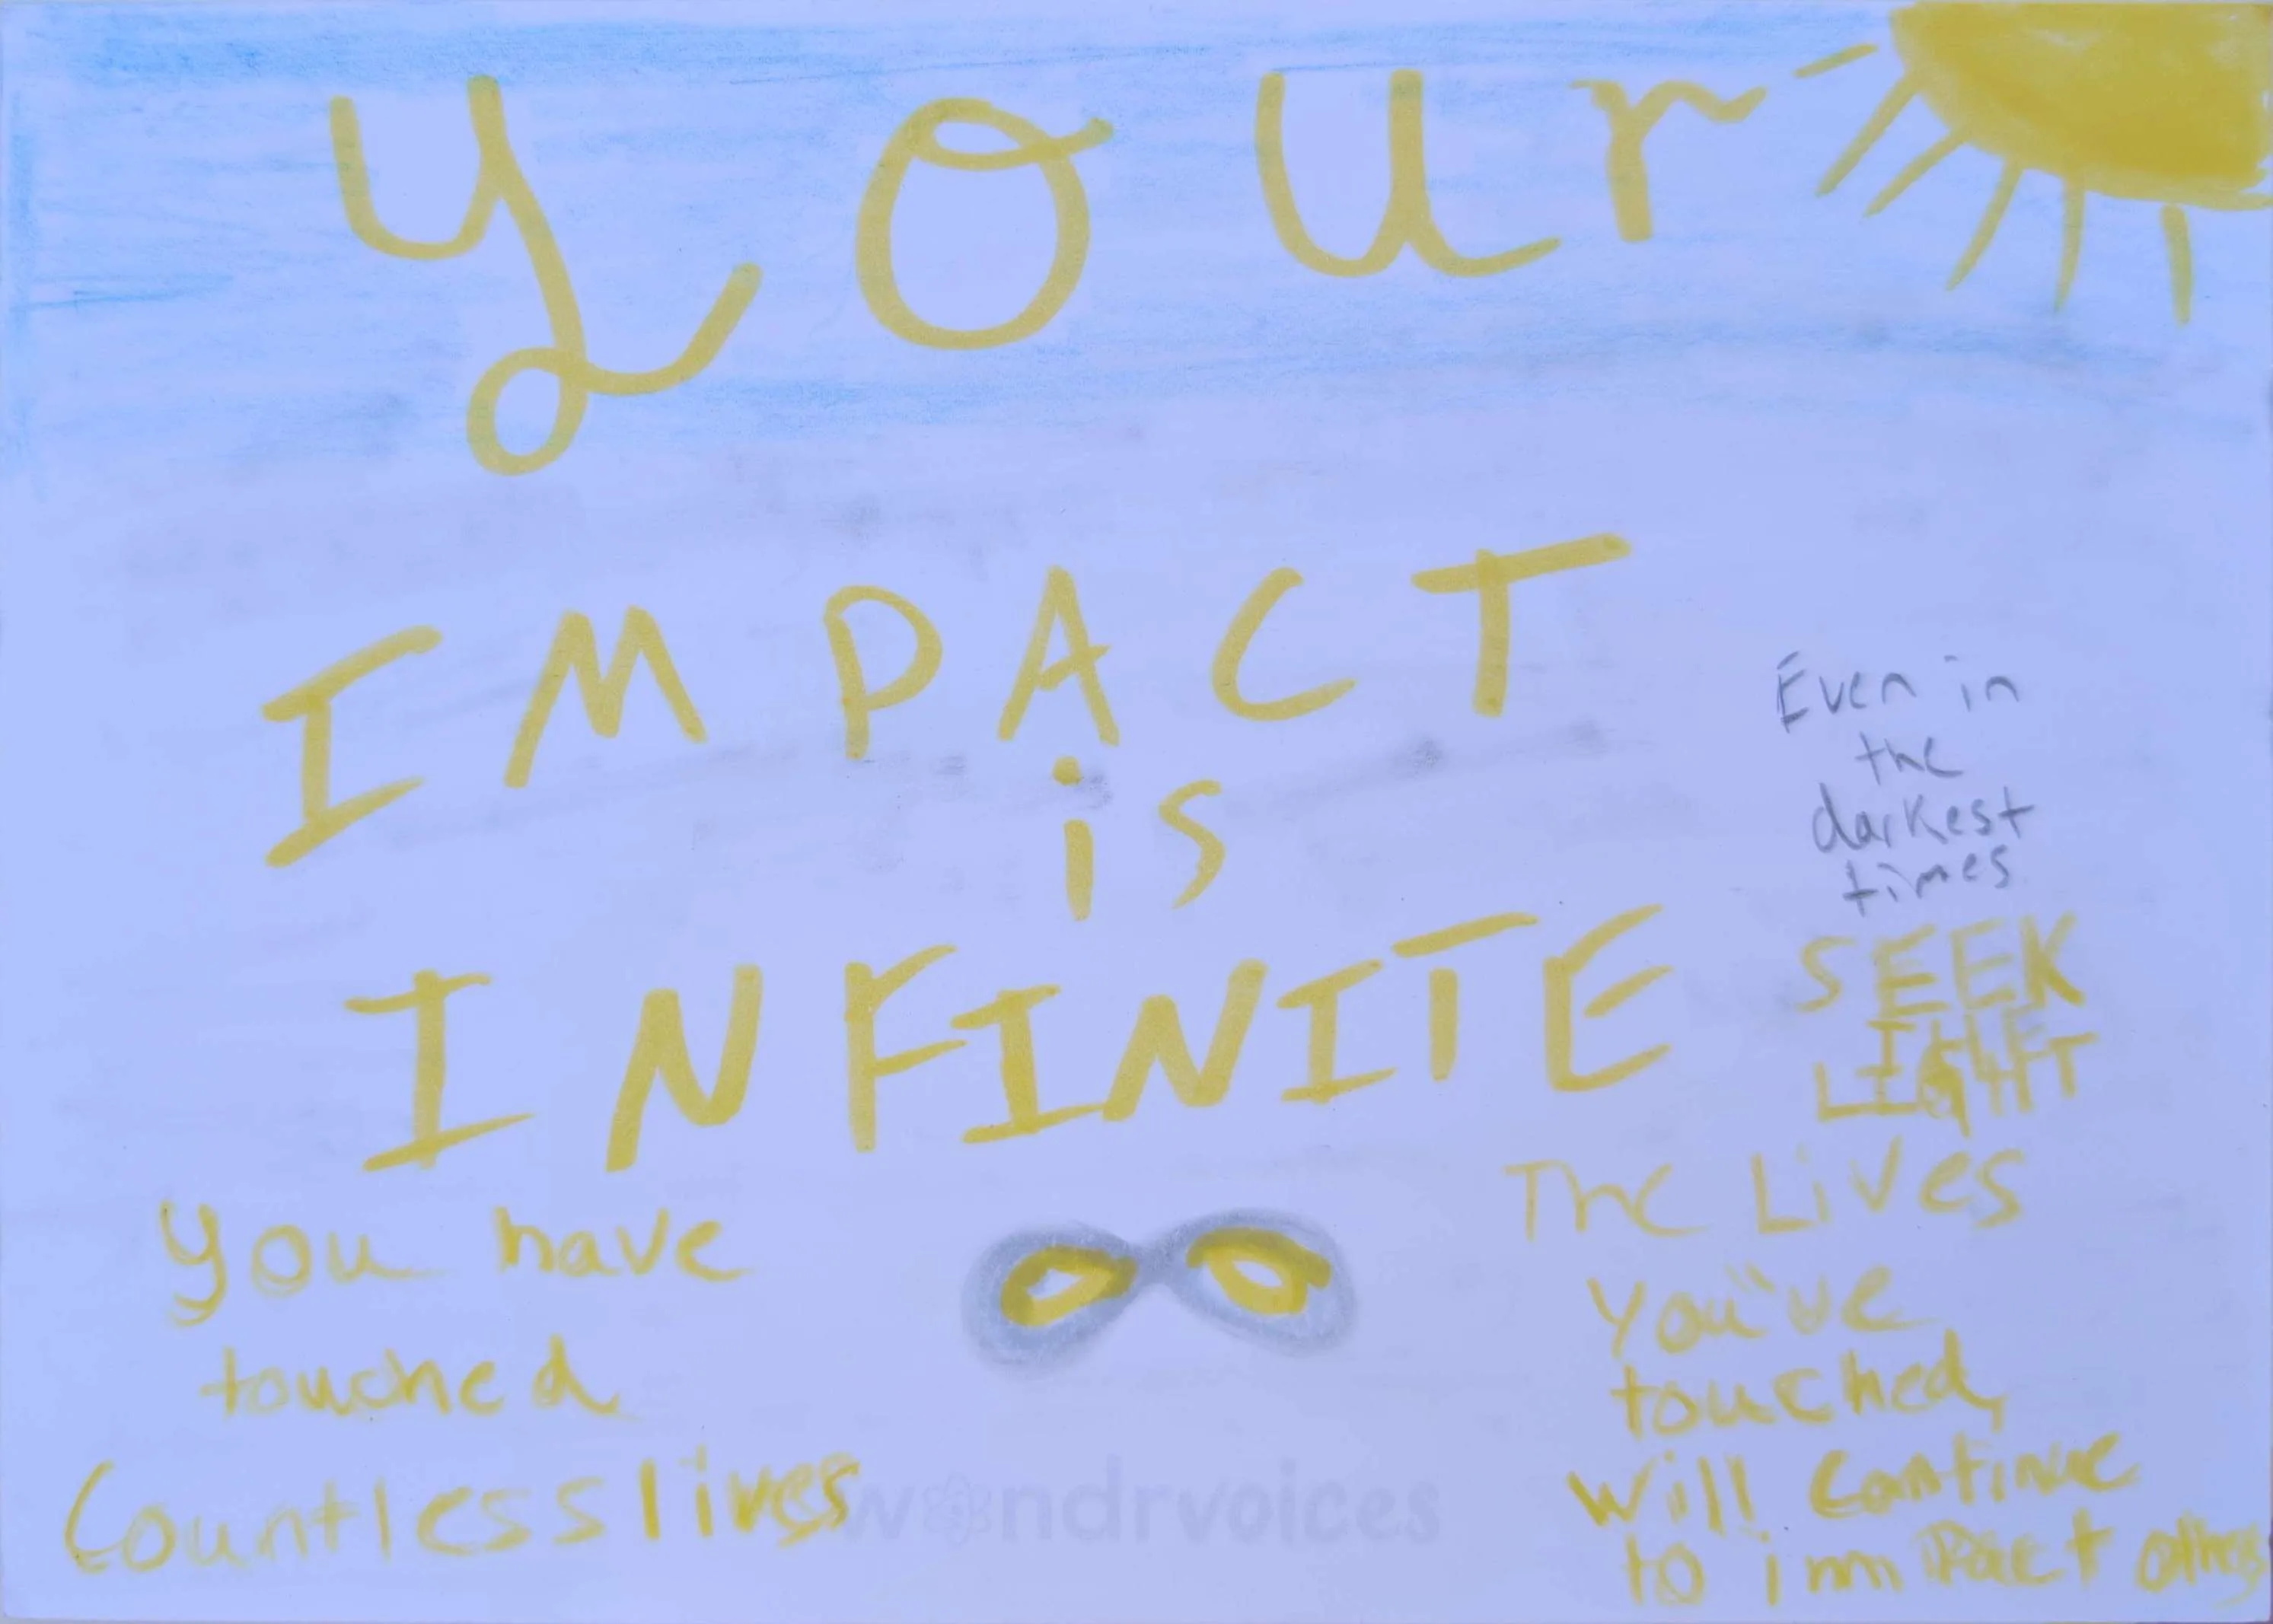 Your
IMPACT
is
INFINITE
Even in
the
darkest
times
SEEK
THE
LIGHT
You have
touched
Countless lives
The Lives
You've
touched,
Will Continue
to impact others
wondrvoices